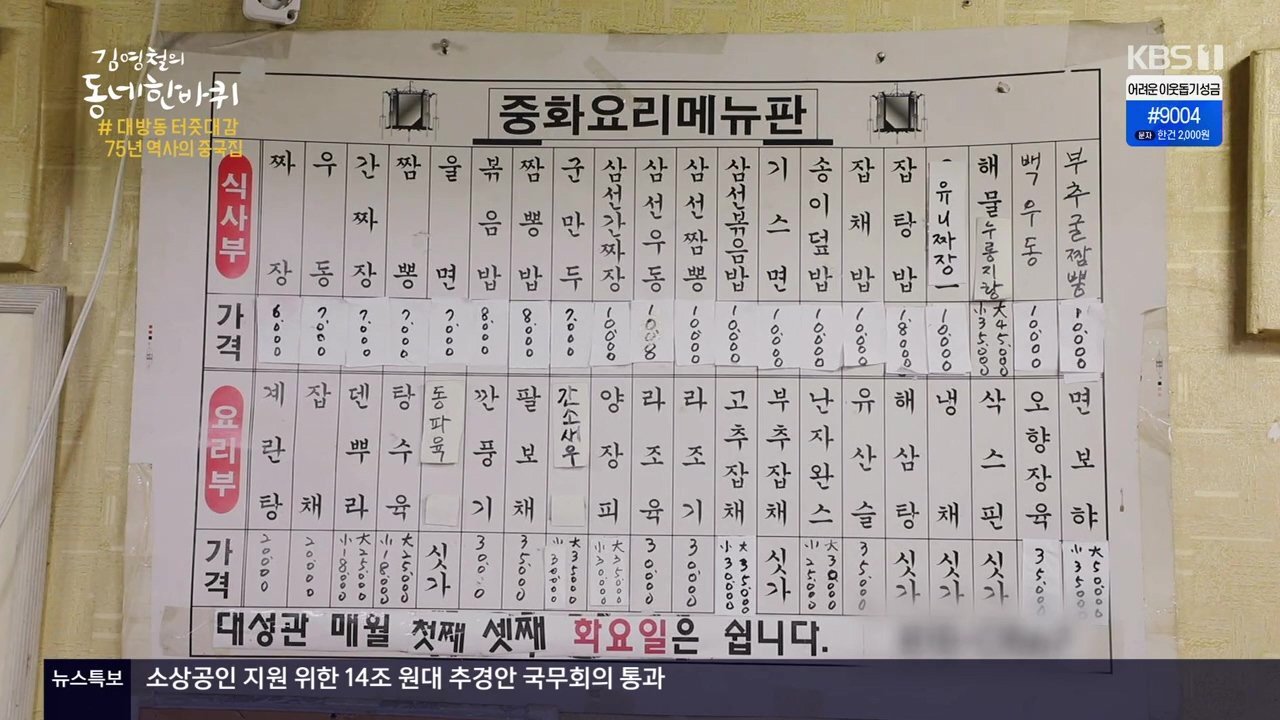 김영철의
동네한바퀴
# 대방동 터줏대감
75년 역사의 중국집
KBS 1
어려운 이웃돕기 성금
#9004
문자 한건 2,000원
중화요리메뉴판
식사부 짜장 우동 간짜장 짬뽕 울면 볶음밥 짬뽕밥 군만두 삼선간짜장 삼선우동 삼선짬뽕 삼선볶음밥 기스면 송이덮밥 잡채밥 잡탕밥 유니짜장 해물누룽지탕 백우동 부추굴짬뽕
가격 6,000 7,000 7,000 7,000 7,000 8,000 8,000 7,000 10,000 10,000 10,000 10,000 10,000 10,000 10,000 18,000 10,000 大45,000 小35,000 10,000 10,000
요리부 계란탕 잡채 덴뿌라 탕수육 동파육 깐풍기 팔보채 간소새우 양장피 라조육 라조기 고추잡채 부추잡채 난자완스 유산슬 해삼탕 냉채 삭스핀 오향장육 면보하
가격 20,000 20,000 大25,000 小18,000 大25,000 小18,000 싯가 30,000 35,000 大35,000 小30,000 大35,000 小30,000 30,000 30,000 大35,000 小30,000 싯가 大30,000 小25,000 35,000 싯가 싯가 싯가 35,000 大50,000 小35,000
대성관 매월 첫째 셋째 화요일은 쉽니다.
뉴스특보 소상공인 지원 위한 14조 원대 추경안 국무회의 통과